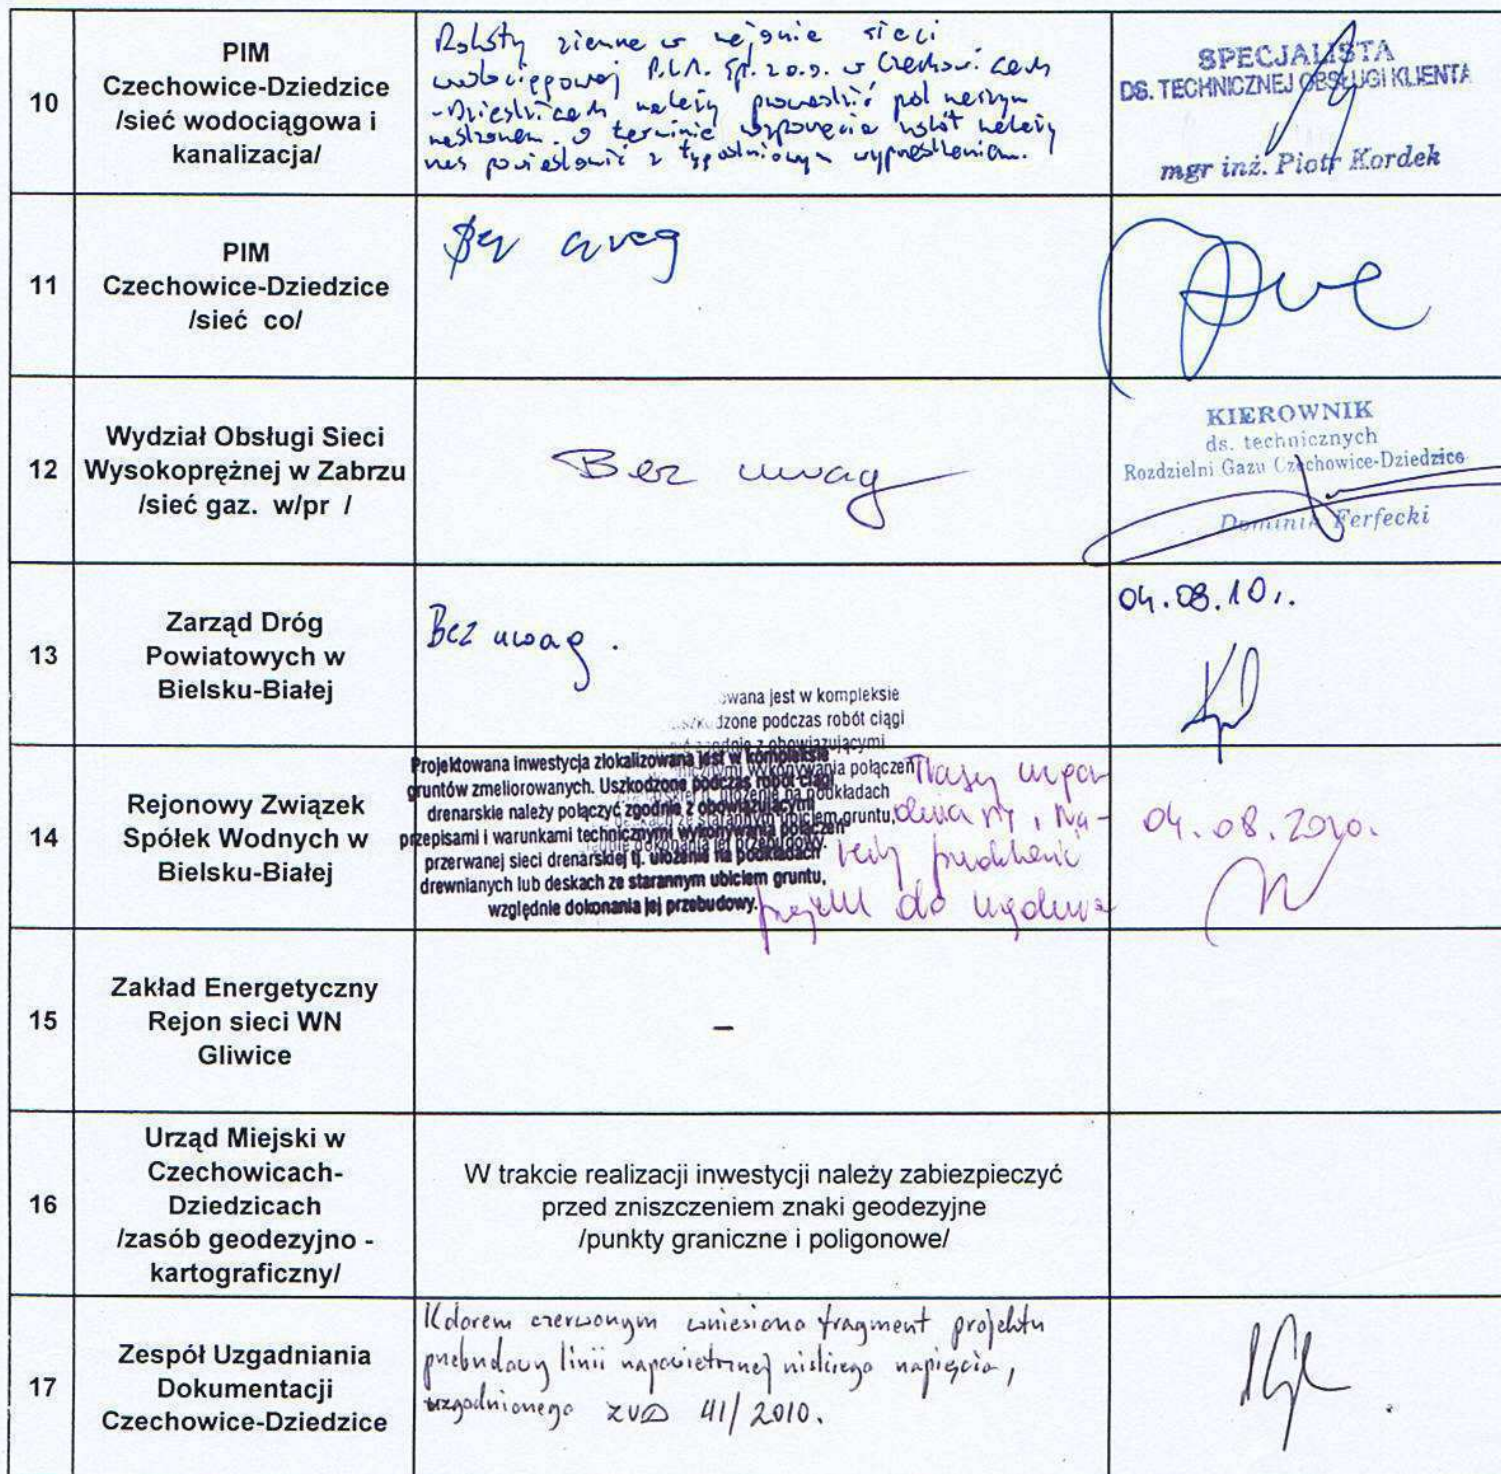 10
PIM
Czechowice-Dziedzice
/sieć wodociągowa i
kanalizacja/
Roboty ziemne w rejonie sieci
wodociągowej P.I.M. Sp. z o.o. w Czechowicach
-Dziedzicach należy prowadzić pod naszym
nadzorem. O terminie rozpoczęcia robót należy
nas powiadomić z tygodniowym wyprzedzeniem.
SPECJALISTA
DS. TECHNICZNEJ OBSŁUGI KLIENTA
mgr inż. Piotr Kordek
11
PIM
Czechowice-Dziedzice
/sieć co/
Bez uwag
12
Wydział Obsługi Sieci
Wysokoprężnej w Zabrzu
/sieć gaz. w/pr /
Bez uwag
KIEROWNIK
ds. technicznych
Rozdzielni Gazu Czechowice-Dziedzice
Dominik Ferfecki
13
Zarząd Dróg
Powiatowych w
Bielsku-Białej
Bez uwag.
04.08.10r.
14
Rejonowy Związek
Spółek Wodnych w
Bielsku-Białej
wana jest w kompleksie
dzone podczas robót ciągi
zgodnie z obowiązującymi
wykonywania połączeń
ułożenie na podkładach
deskach ze starannym ubiciem gruntu,
dokonania jej przebudowy.
Projektowana inwestycja zlokalizowana jest w kompleksie
gruntów zmeliorowanych. Uszkodzone podczas robót ciągi
drenarskie należy połączyć zgodnie z obowiązującymi
przepisami i warunkami technicznymi wykonywania połączeń
przerwanej sieci drenarskiej tj. ułożenie na podkładach
drewnianych lub deskach ze starannym ubiciem gruntu,
względnie dokonania jej przebudowy.
projekt do
04.08.2010.
15
Zakład Energetyczny
Rejon sieci WN
Gliwice
–
16
Urząd Miejski w
Czechowicach-
Dziedzicach
/zasób geodezyjno -
kartograficzny/
W trakcie realizacji inwestycji należy zabiezpieczyć
przed zniszczeniem znaki geodezyjne
/punkty graniczne i poligonowe/
17
Zespół Uzgadniania
Dokumentacji
Czechowice-Dziedzice
Kolorem czerwonym wniesiono fragment projektu
przebudowy linii napowietrznej niskiego napięcia,
uzgodnionego ZUD 41/2010.